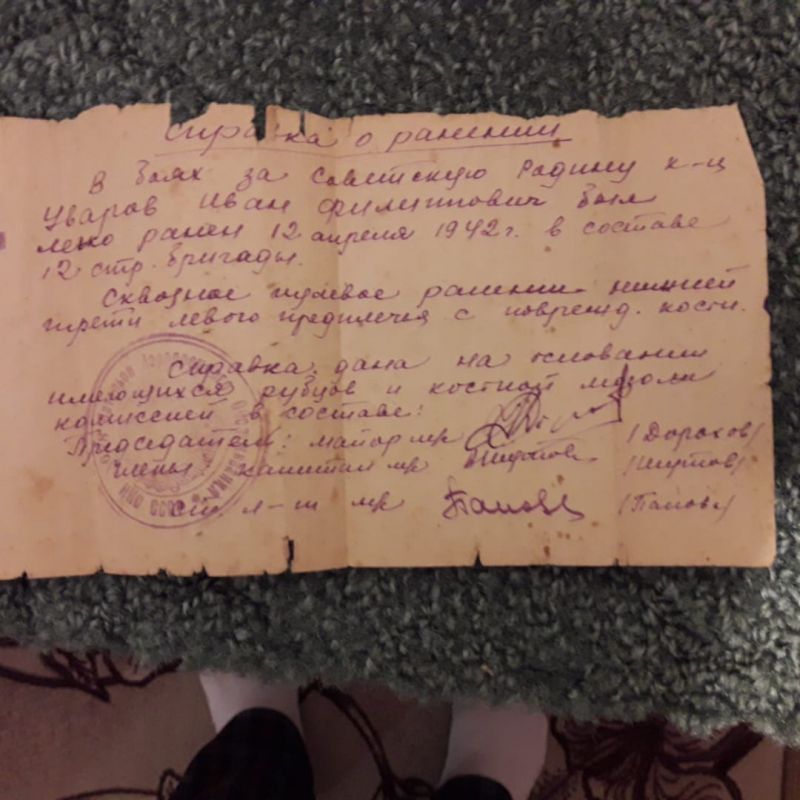 Справка о ранении
В боях за Советскую Родину к-ц
Уваров Иван Филиппович был
легко ранен 12 апреля 1942 г. в составе
12 стр. бригады.
Сквозное пулевое ранение нижней
трети левого предплечья с поврежд. кости.
Справка дана на основании
имеющихся рубцов и костной мозоли
комиссией в составе:
Председатель: майор м/с /Дорохов/
Члены капитан м/с
Ст. л-т м/с /Панов/